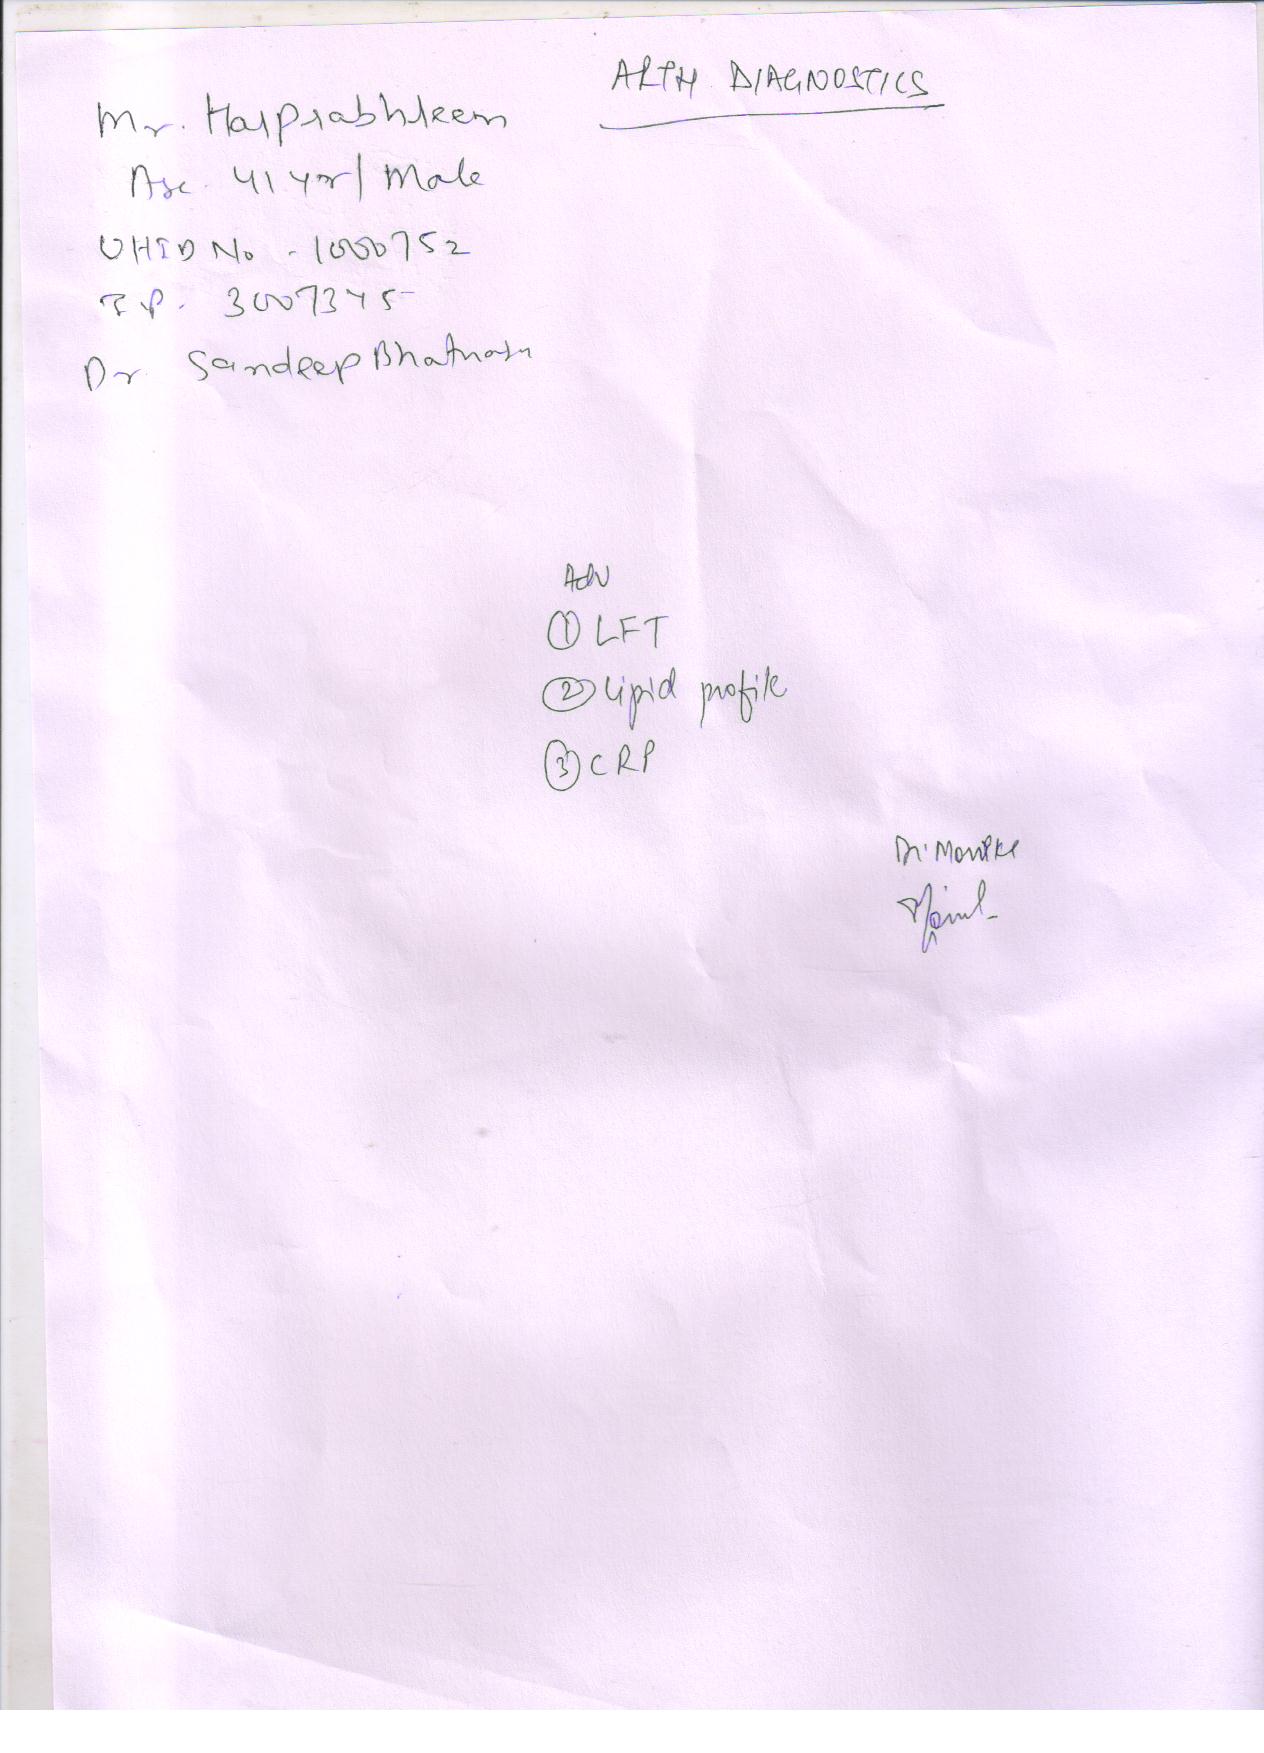 ARTH DIAGNOSTICS
Mr. Harprabhleem
Age. 41 yr/ Male
UHID No - 1000752
IP. 3007345
Dr. Sandeep Bhatnagar
Adv
① LFT
② Lipid profile
③ CRP
Dr. Monika